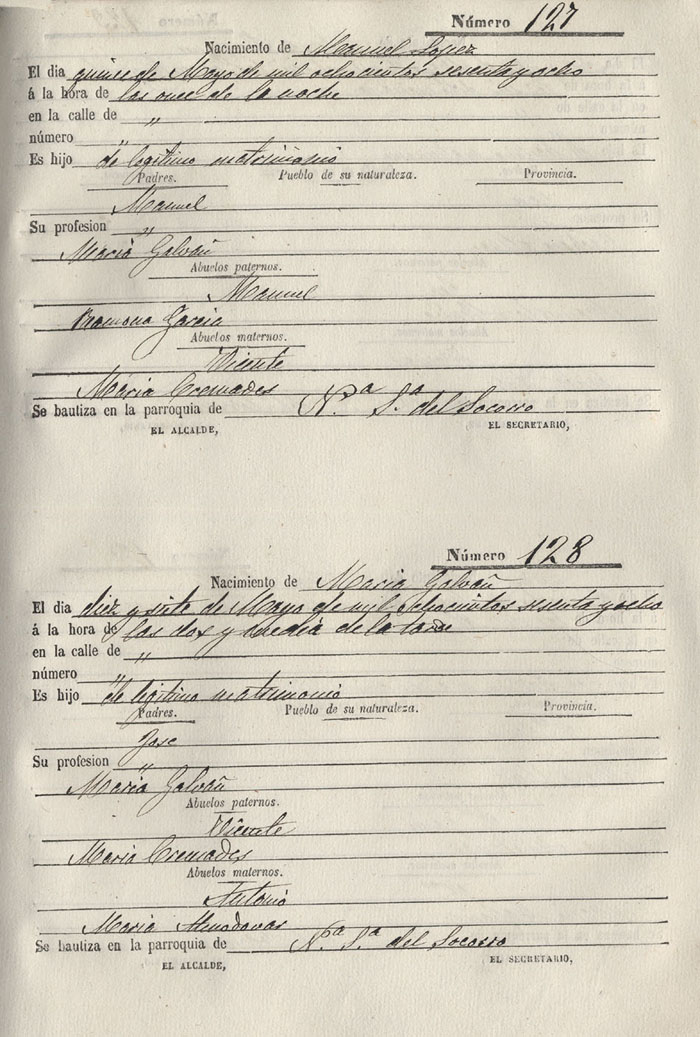 Número 127
Nacimiento de Manuel Lopez
El dia quince de Mayo de mil ochocientos sesenta y ocho
á la hora de las once de la noche
en la calle de "
número "
Es hijo de legitimo matrimonio
Padres. Pueblo de su naturaleza. Provincia.
Manuel
Su profesion "
Maria Galvañ
Abuelos paternos.
Manuel
Ramona Garcia
Abuelos maternos.
Vicente
Maria Cremades
Se bautiza en la parroquia de Nª Sª del Socorro
EL ALCALDE, EL SECRETARIO,
Número 128
Nacimiento de Maria Galvañ
El dia diez y siete de Mayo de mil ochocientos sesenta y ocho
á la hora de las dos y media de la tarde
en la calle de "
número "
Es hijo de legitimo matrimonio
Padres. Pueblo de su naturaleza. Provincia.
Jose
Su profesion "
Maria Galvañ
Abuelos paternos.
Vicente
Maria Cremades
Abuelos maternos.
Antonio
Maria Almodovar
Se bautiza en la parroquia de Nª Sª del Socorro
EL ALCALDE, EL SECRETARIO,